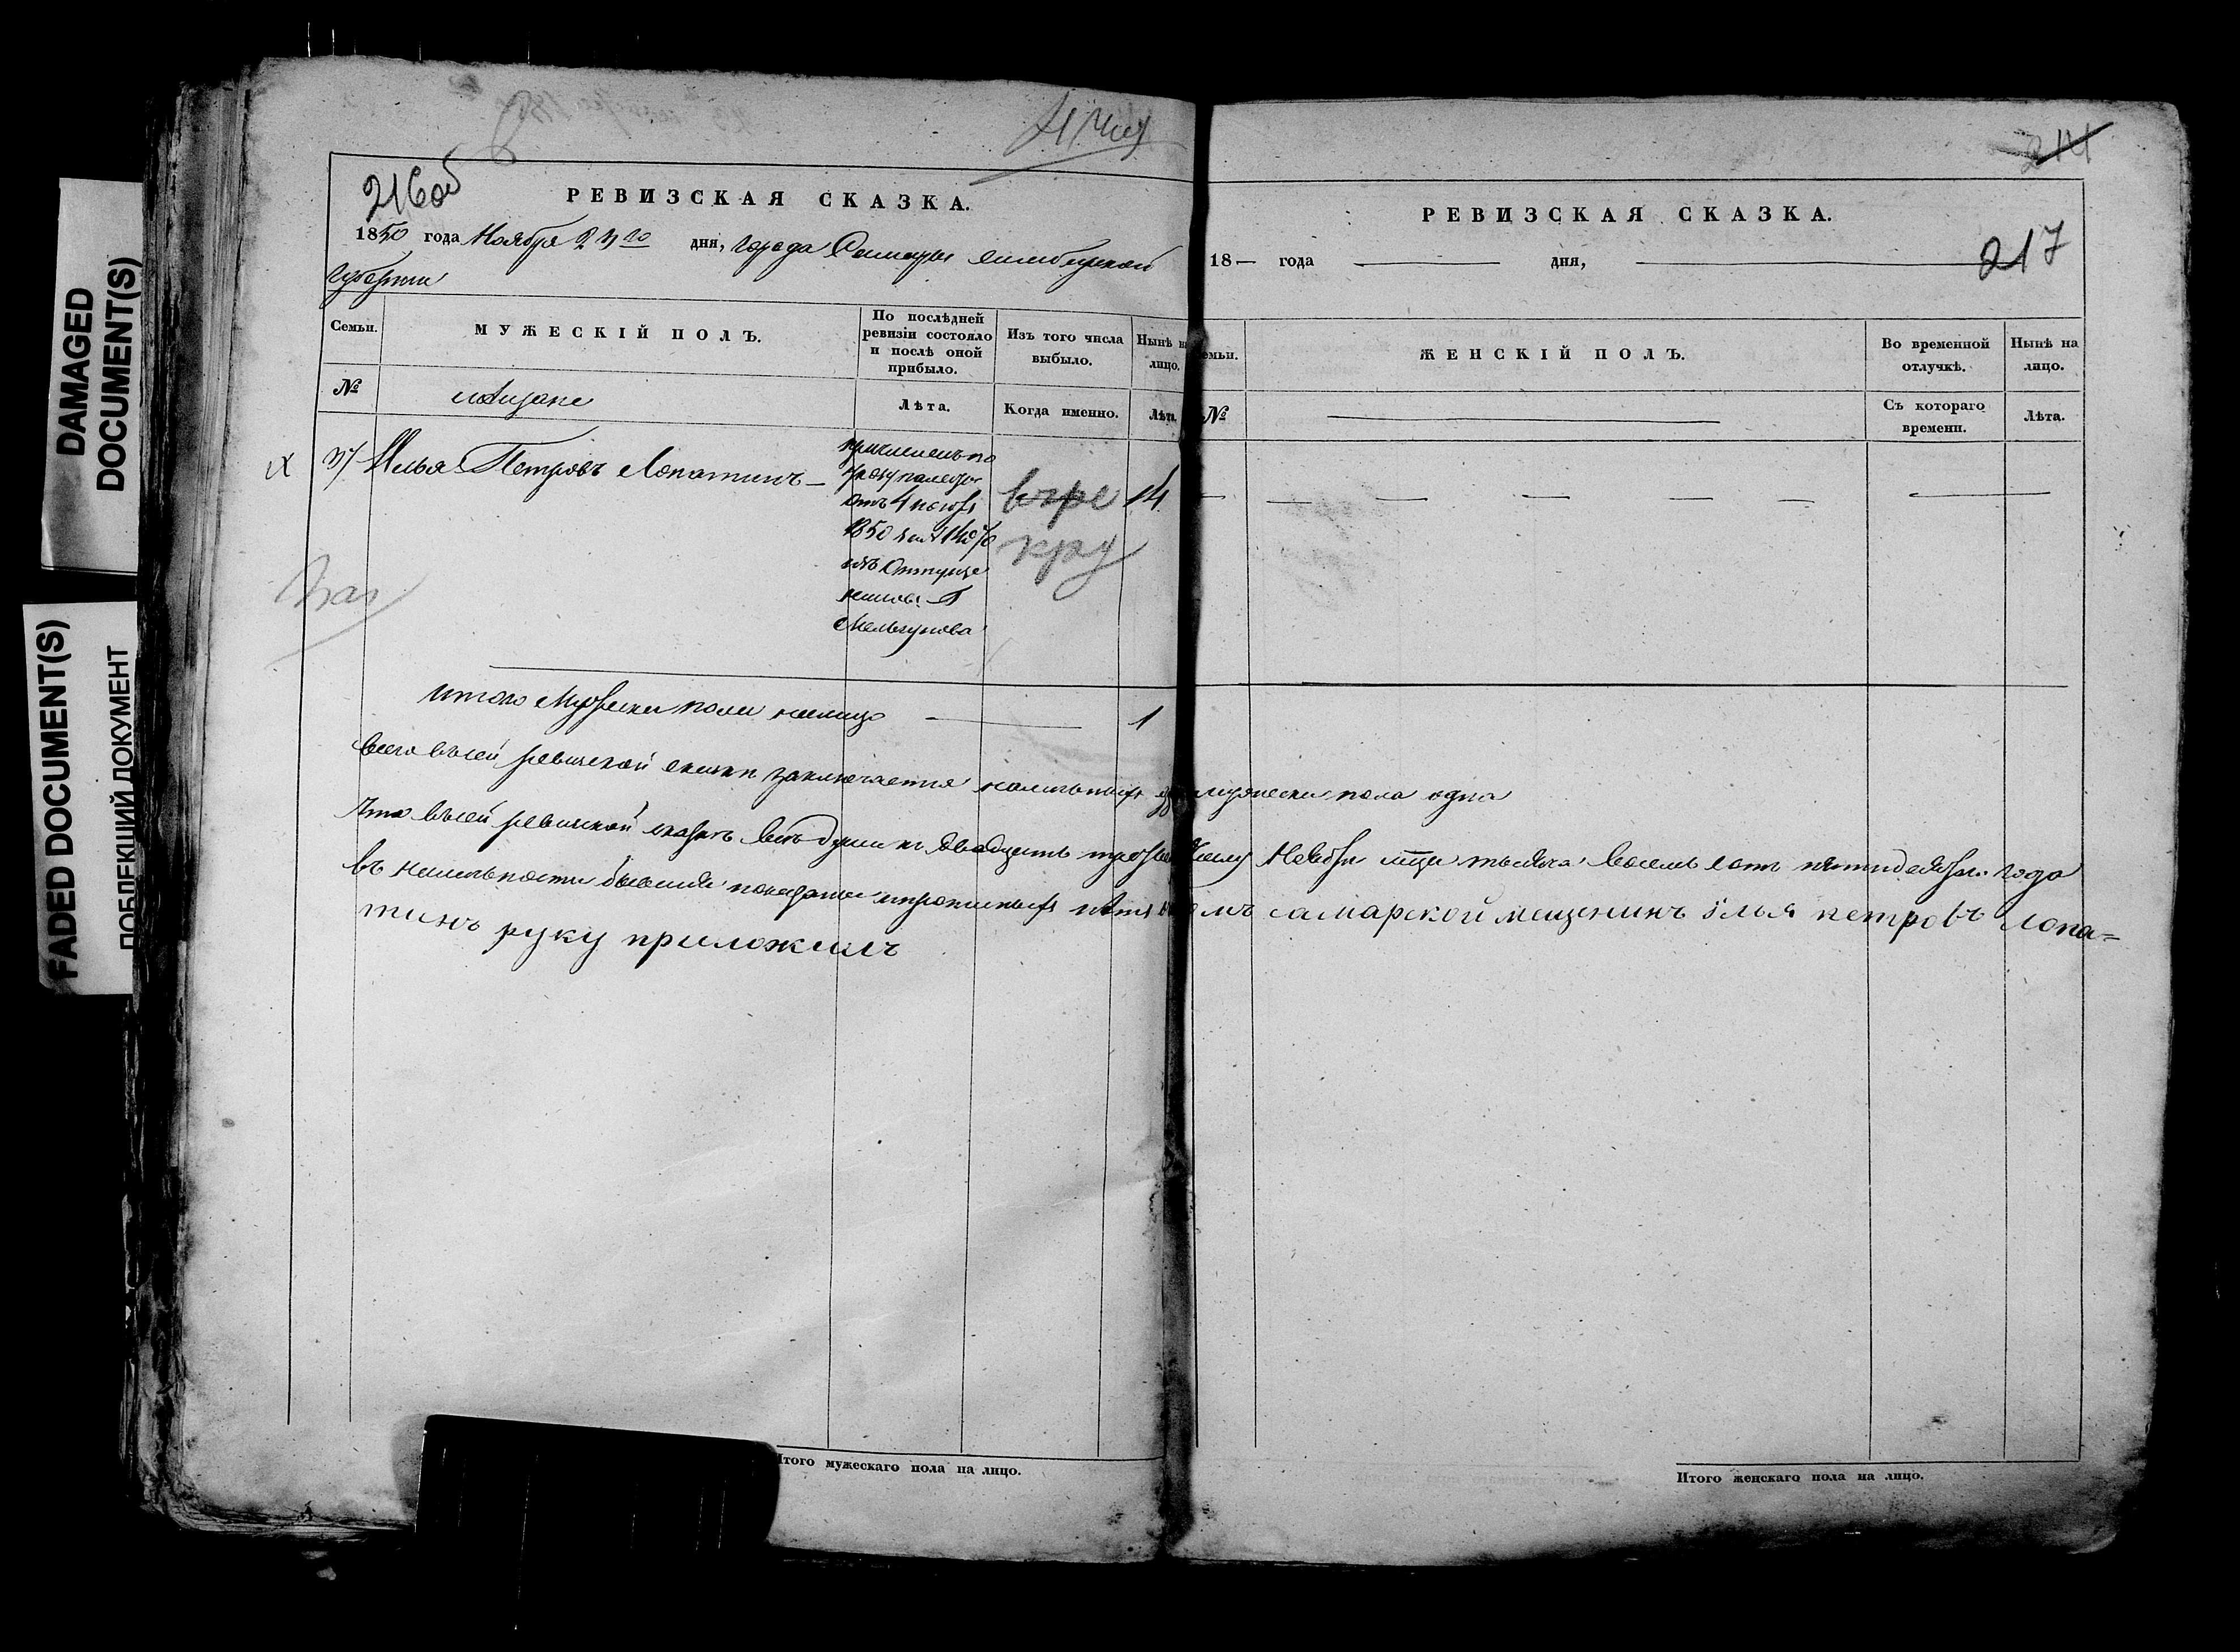 DAMAGED
DOCUMENT(S)
FADED DOCUMENT(S)
ПОБЛЕКШИЙ ДОКУМЕНТ
216об
РЕВИЗСКАЯ СКАЗКА.
1850 года Ноября 23го дня, города Самары Симбирской
губернии
Семьи.
МУЖЕСКІЙ ПОЛЪ.
По послѣдней
ревизіи состояло
и послѣ оной
прибыло.
Изъ того числа
выбыло.
Нынѣ на
лицо.
№
мѣщане
Лѣта.
Когда именно.
Лѣта.
Илья Петровъ Лопатинъ
причисленъ по
указу палаты
отъ 4 июня
1850
изъ Отпуще
Мельгунова
14
Итого Мужеска пола налицо 1
Всего въ сей ревизской сказки заключается наличныхъ мужеска пола одна
Что въ сей ревизской сказкѣ всѣ души къ двадцать третьему числу Ноября мца тысяча восемь сотъ пятидесятаго года
въ наличности бывшия показаны и прописныхъ нѣтъ въ томъ самарской мещенинъ Їлья петровъ лопа=
тинъ руку приложилъ
Итого мужескаго пола на лицо.
214
РЕВИЗСКАЯ СКАЗКА.
217
18— года дня,
Семьи.
ЖЕНСКІЙ ПОЛЪ.
Во временной
отлучкѣ.
Нынѣ на
лицо.
№
Съ котораго
времени.
Лѣта.
Итого женскаго пола на лицо.